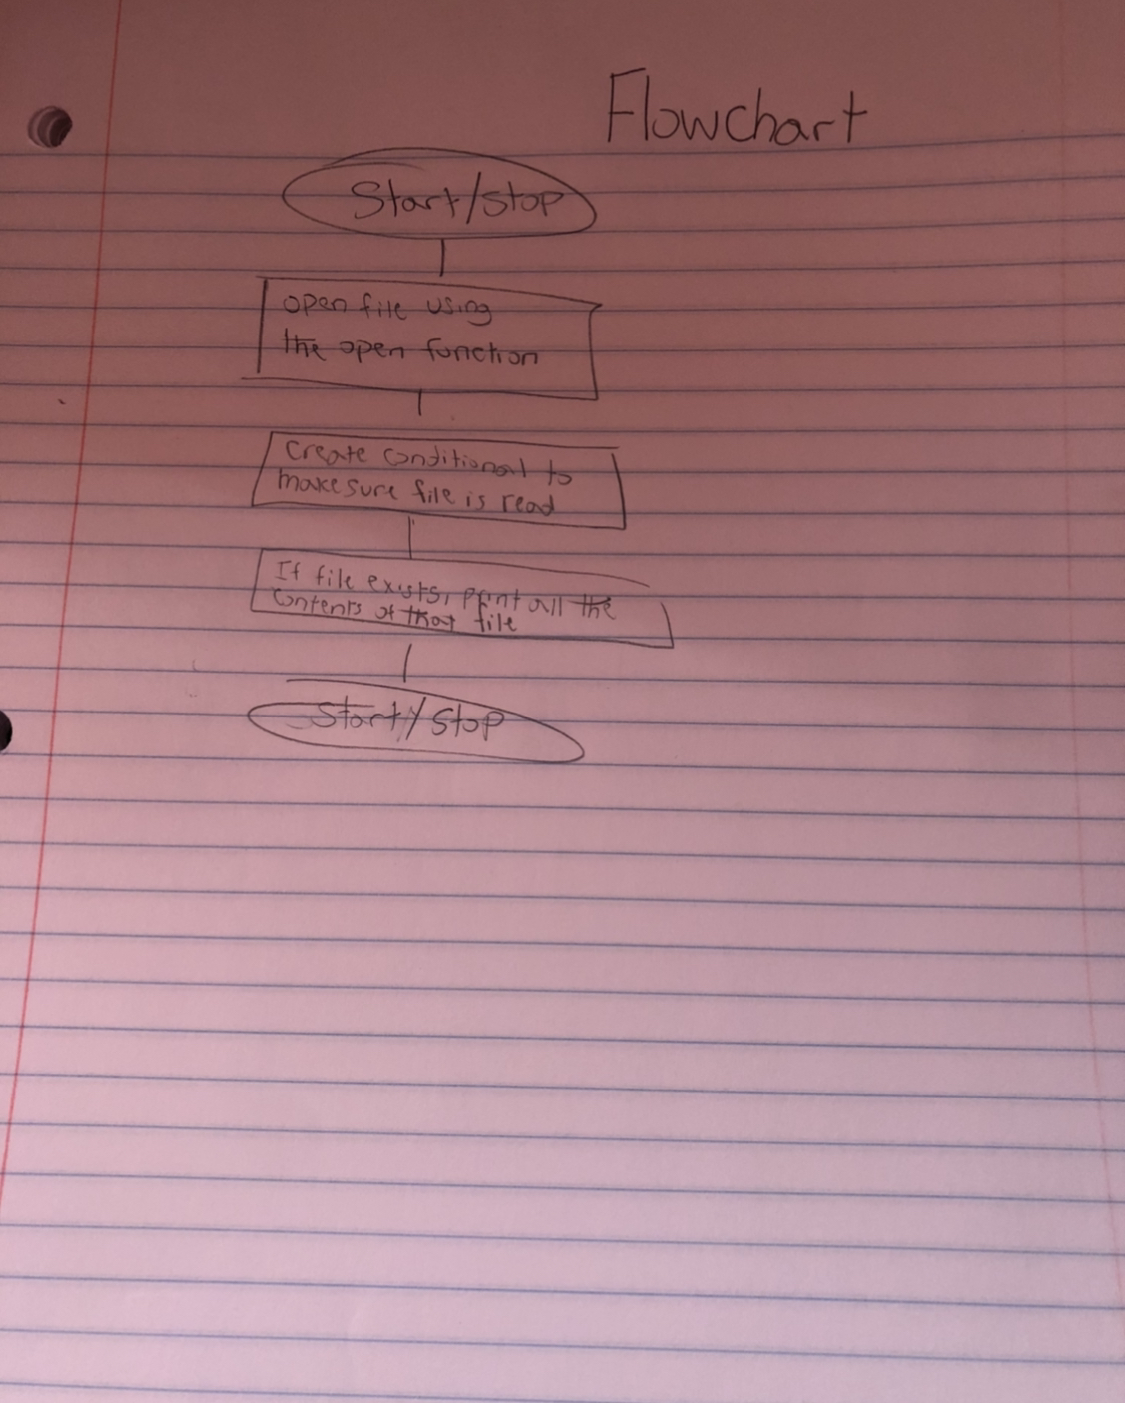 Flowchart
Start/Stop
open file using
the open function
Create conditional to
make sure file is read
If file exists, print all the
contents of that file
Start/Stop